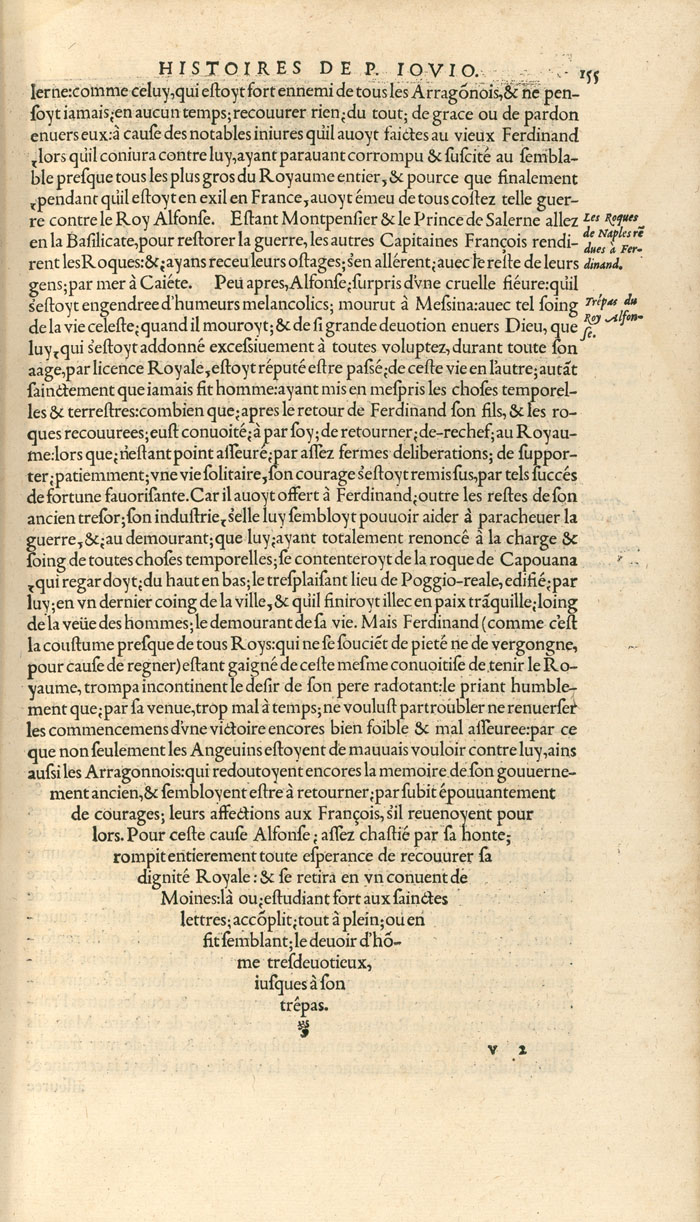 HISTOIRES DE P. IOVIO.
155
lerne:comme celuy,qui eſtoyt fort ennemi de tous les Arragõnois,& ne pen-
ſoyt iamais;en aucun temps;recouurer rien;du tout; de grace ou de pardon
enuers eux:à cauſe des notables iniures qu'il auoyt faictes au vieux Ferdinand
,lors qu'il coniura contre luy,ayant parauant corrompu & ſuſcité au ſembla-
ble preſque tous les plus gros du Royaume entier,& pource que finalement
,pendant qu'il eſtoyt en exil en France,auoyt émeu de tous coſtez telle guer-
re contre le Roy Alfonſe. Eſtant Montpenſier & le Prince de Salerne allez
en la Baſilicate,pour reſtorer la guerre,les autres Capitaines François rendi-
rent les Roques:&;ayans receu leurs oſtages;s'en allérent;auec le reſte de leurs
gens;par mer à Caiéte. Peu apres,Alfonſe;ſurpris d'vne cruelle fiéure:qu'il
s'eſtoyt engendree d'humeurs melancolics; mourut à Meſsina:auec tel ſoing
de la vie celeſte;quand il mouroyt;& de ſi grande deuotion enuers Dieu, que
luy,qui s'eſtoyt addonné exceſsiuement à toutes voluptez,durant toute ſon
aage,par licence Royale,eſtoyt réputé eſtre paſſé;de ceſte vie en l'autre;autãt
ſainctement que iamais fit homme:ayant mis en meſpris les choſes temporel-
les & terreſtres:combien que;apres le retour de Ferdinand ſon fils,& les ro-
ques recouurees;euſt conuoité;à par ſoy;de retourner;de-rechef;au Royau-
me:lors que;n'eſtant point aſſeuré;par aſſez fermes deliberations; de ſuppor-
ter;patiemment;vne vie ſolitaire,ſon courage s'eſtoyt remis ſus,par tels ſuccés
de fortune fauoriſante.Car il auoyt offert à Ferdinand;outre les reſtes de ſon
ancien treſor;ſon induſtrie,s'elle luy ſembloyt pouuoir aider à paracheuer la
guerre,&;au demourant;que luy;ayant totalement renoncé à la charge &
ſoing de toutes choſes temporelles;ſe contenteroyt de la roque de Capouana
,qui regardoyt;du haut en bas;le treſplaiſant lieu de Poggio-reale,edifié;par
luy;en vn dernier coing de la ville,& qu'il finiroyt illec en paix trãquille;loing
de la veüe des hommes;le demourant de ſa vie. Mais Ferdinand (comme c'eſt
la couſtume preſque de tous Roys:qui ne ſe ſouciẽt de pieté ne de vergongne,
pour cauſe de regner)eſtant gaigné de ceſte meſme conuoitiſe de tenir le Ro-
yaume, trompa incontinent le deſir de ſon pere radotant:le priant humble-
ment que;par ſa venue,trop mal à temps;ne vouluſt par troubler ne renuerſer
les commencemens d'vne victoire encores bien foible & mal aſſeuree:par ce
que non ſeulement les Angeuins eſtoyent de mauuais vouloir contre luy,ains
auſsi les Arragonnois:qui redoutoyent encores la memoire de ſon gouuerne-
ment ancien,& ſembloyent eſtre à retourner;par ſubit épouuantement
de courages; leurs affections aux François,s'il reuenoyent pour
lors. Pour ceſte cauſe Alfonſe; aſſez chaſtié par ſa honte;
rompit entierement toute eſperance de recouurer ſa
dignité Royale: & ſe retira en vn conuent de
Moines:là ou;eſtudiant fort aux ſainctes
lettres;accõplit;tout à plein;ou en
fit ſemblant;le deuoir d'hõ-
me treſdeuotieux,
iuſques à ſon
trépas.
Les Roques
de Naples rẽ
dues à Fer-
dinand.
Trépas du
Roy Alfon-
ſe.
V 2